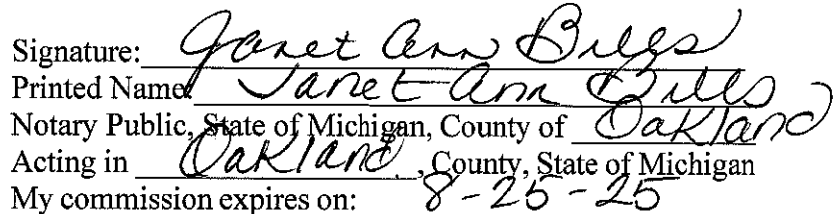 Signature: Janet Ann Bills
Printed Name: Janet Ann Bills
Notary Public, State of Michigan, County of Oakland
Acting in Oakland, County, State of Michigan
My commission expires on: 8-25-25